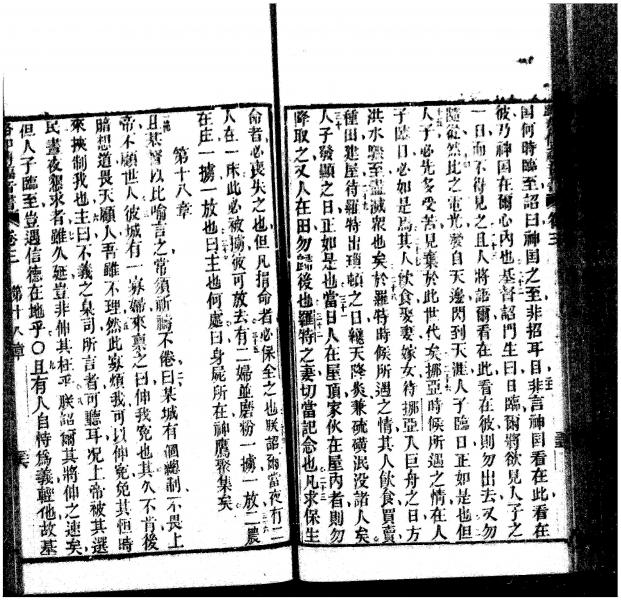 國何時臨至詔曰神国之至非招耳目非言神国看在此看在
彼乃神国在爾心內也基督詔門生曰日臨爾將欲見人子之
一日而不得見之且人將語爾看在此看在彼則勿出去又勿
隨從然此之電光發自天邊閃到天涯人子臨日正如是也但
人子必先多受苦見棄於此世代矣挪亞時候所遇之情在人
子臨日必如是焉其人飲食娶妻嫁女待挪亞入巨舟之日方
洪水至盡滅衆也矣於羅特時候所遇之情其人飲食買賣
種田建屋待羅特出瑣頓之日纔天降炎兼硫磺泯没諸人矣
人子發顯之日正如是也當日人在屋頂家伙在屋內者則勿
降取之又人在田勿歸後也羅特之妻切當記念也凡求保生
命者必喪失之也但凡捐命者必保全之也朕詔爾當夜有二
人在一床此必被擄彼可放去有二婦並磨粉一擄一放二農
在庄一擄一放也曰主也何處曰身屍所在神鷹聚集矣
第十八章
且基督以比喻言之常須祈禱不倦曰某城有個總制不畏上
帝不顧世人彼城有一寡婦來稟之曰伸我冤也其久不肯後
暗想道畏天顧人吾雖不理然此寡煩我可以伸冤免其恒時
來挾制我也主曰不義之臬司所言者可聽耳况上帝被其選
民晝夜懇求者雖久延豈非伸其枉乎朕詔爾其將伸之速矣
但人子臨至豈遇信德在地乎〇且有人自恃為義輕他故基
卷三 第十八章